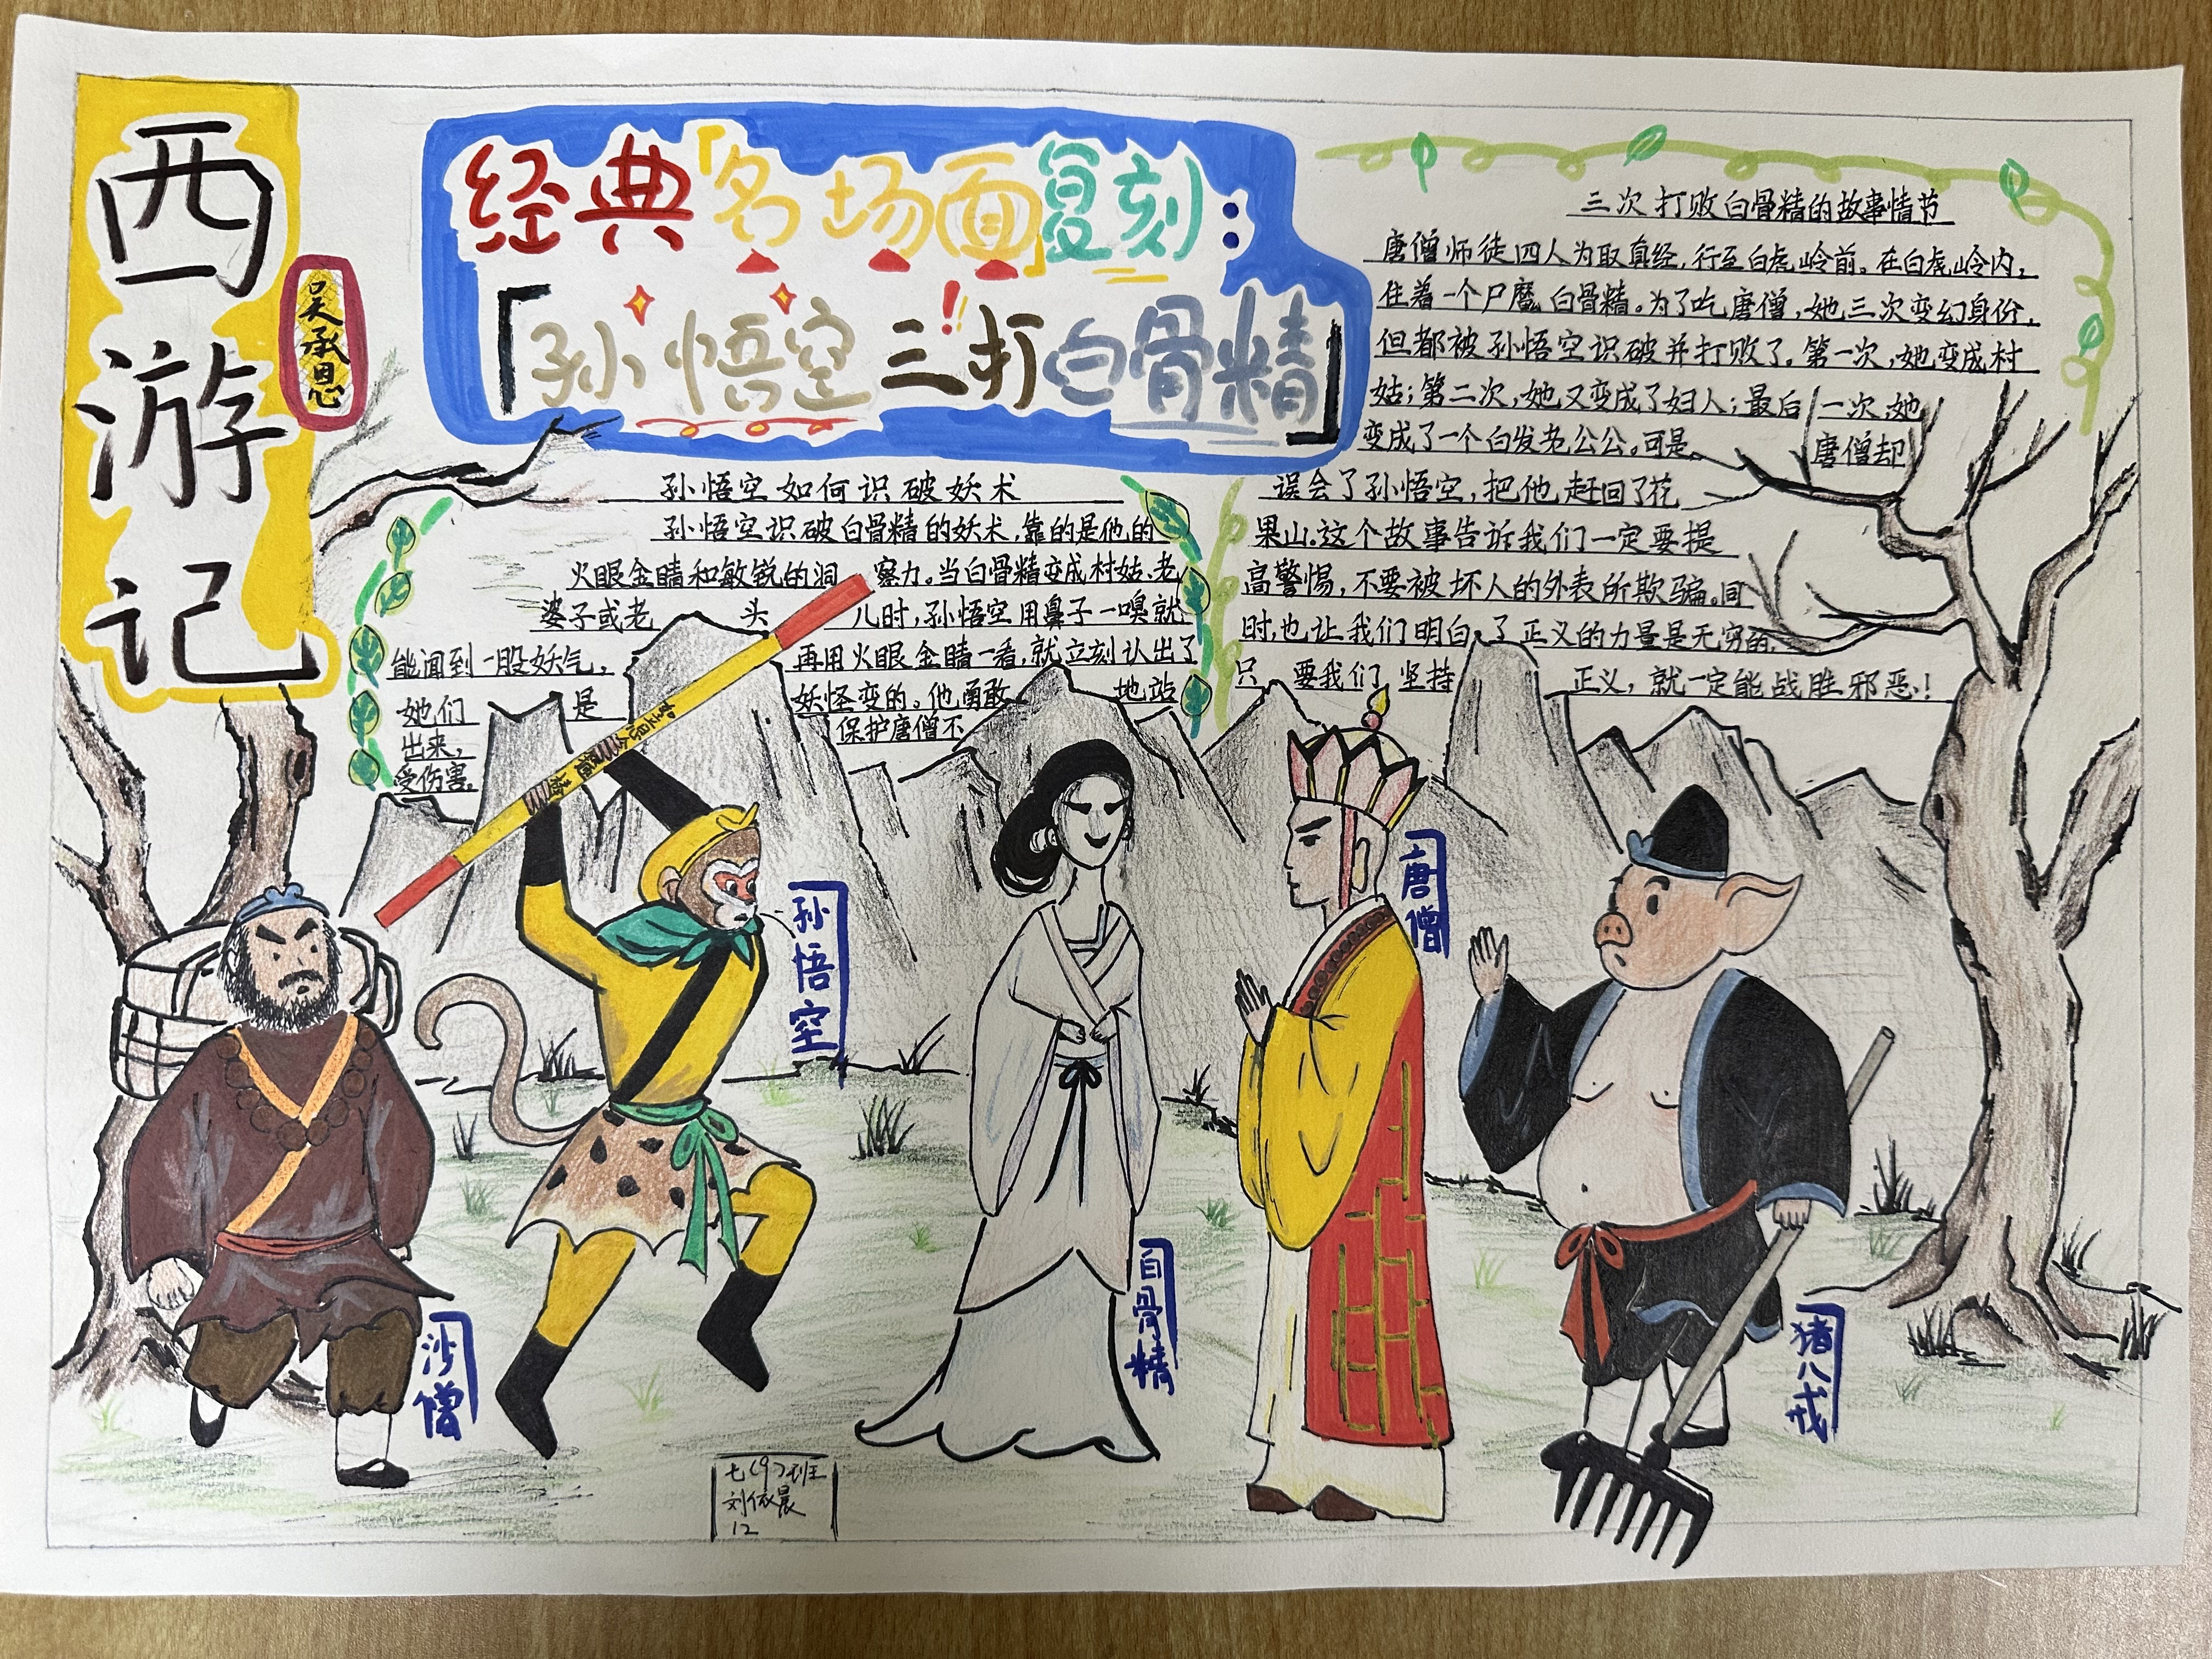 西游记
吴承恩
经典「名场面」复刻：
「孙悟空三打白骨精」
孙悟空如何识破妖术
孙悟空识破白骨精的妖术，靠的是他的
火眼金睛和敏锐的洞察力。当白骨精变成村姑、老
婆子或老头儿时，孙悟空用鼻子一嗅就
能闻到一股妖气，再用火眼金睛一看，就立刻认出了
她们是妖怪变的。他勇敢地站
出来，保护唐僧不
受伤害。
三次打败白骨精的故事情节
唐僧师徒四人为取真经，行至白虎岭前。在白虎岭内，
住着一个尸魔白骨精。为了吃唐僧，她三次变幻身份，
但都被孙悟空识破并打败了。第一次，她变成村
姑；第二次，她又变成了妇人；最后一次她
变成了一个白发老公公。可是唐僧却
误会了孙悟空，把他赶回了花
果山。这个故事告诉我们一定要提
高警惕，不要被坏人的外表所欺骗。同
时，也让我们明白了正义的力量是无穷的，
只要我们坚持正义，就一定能战胜邪恶！
如意金箍棒
沙僧
孙悟空
白骨精
唐僧
猪八戒
七(9)班
刘依晨
12